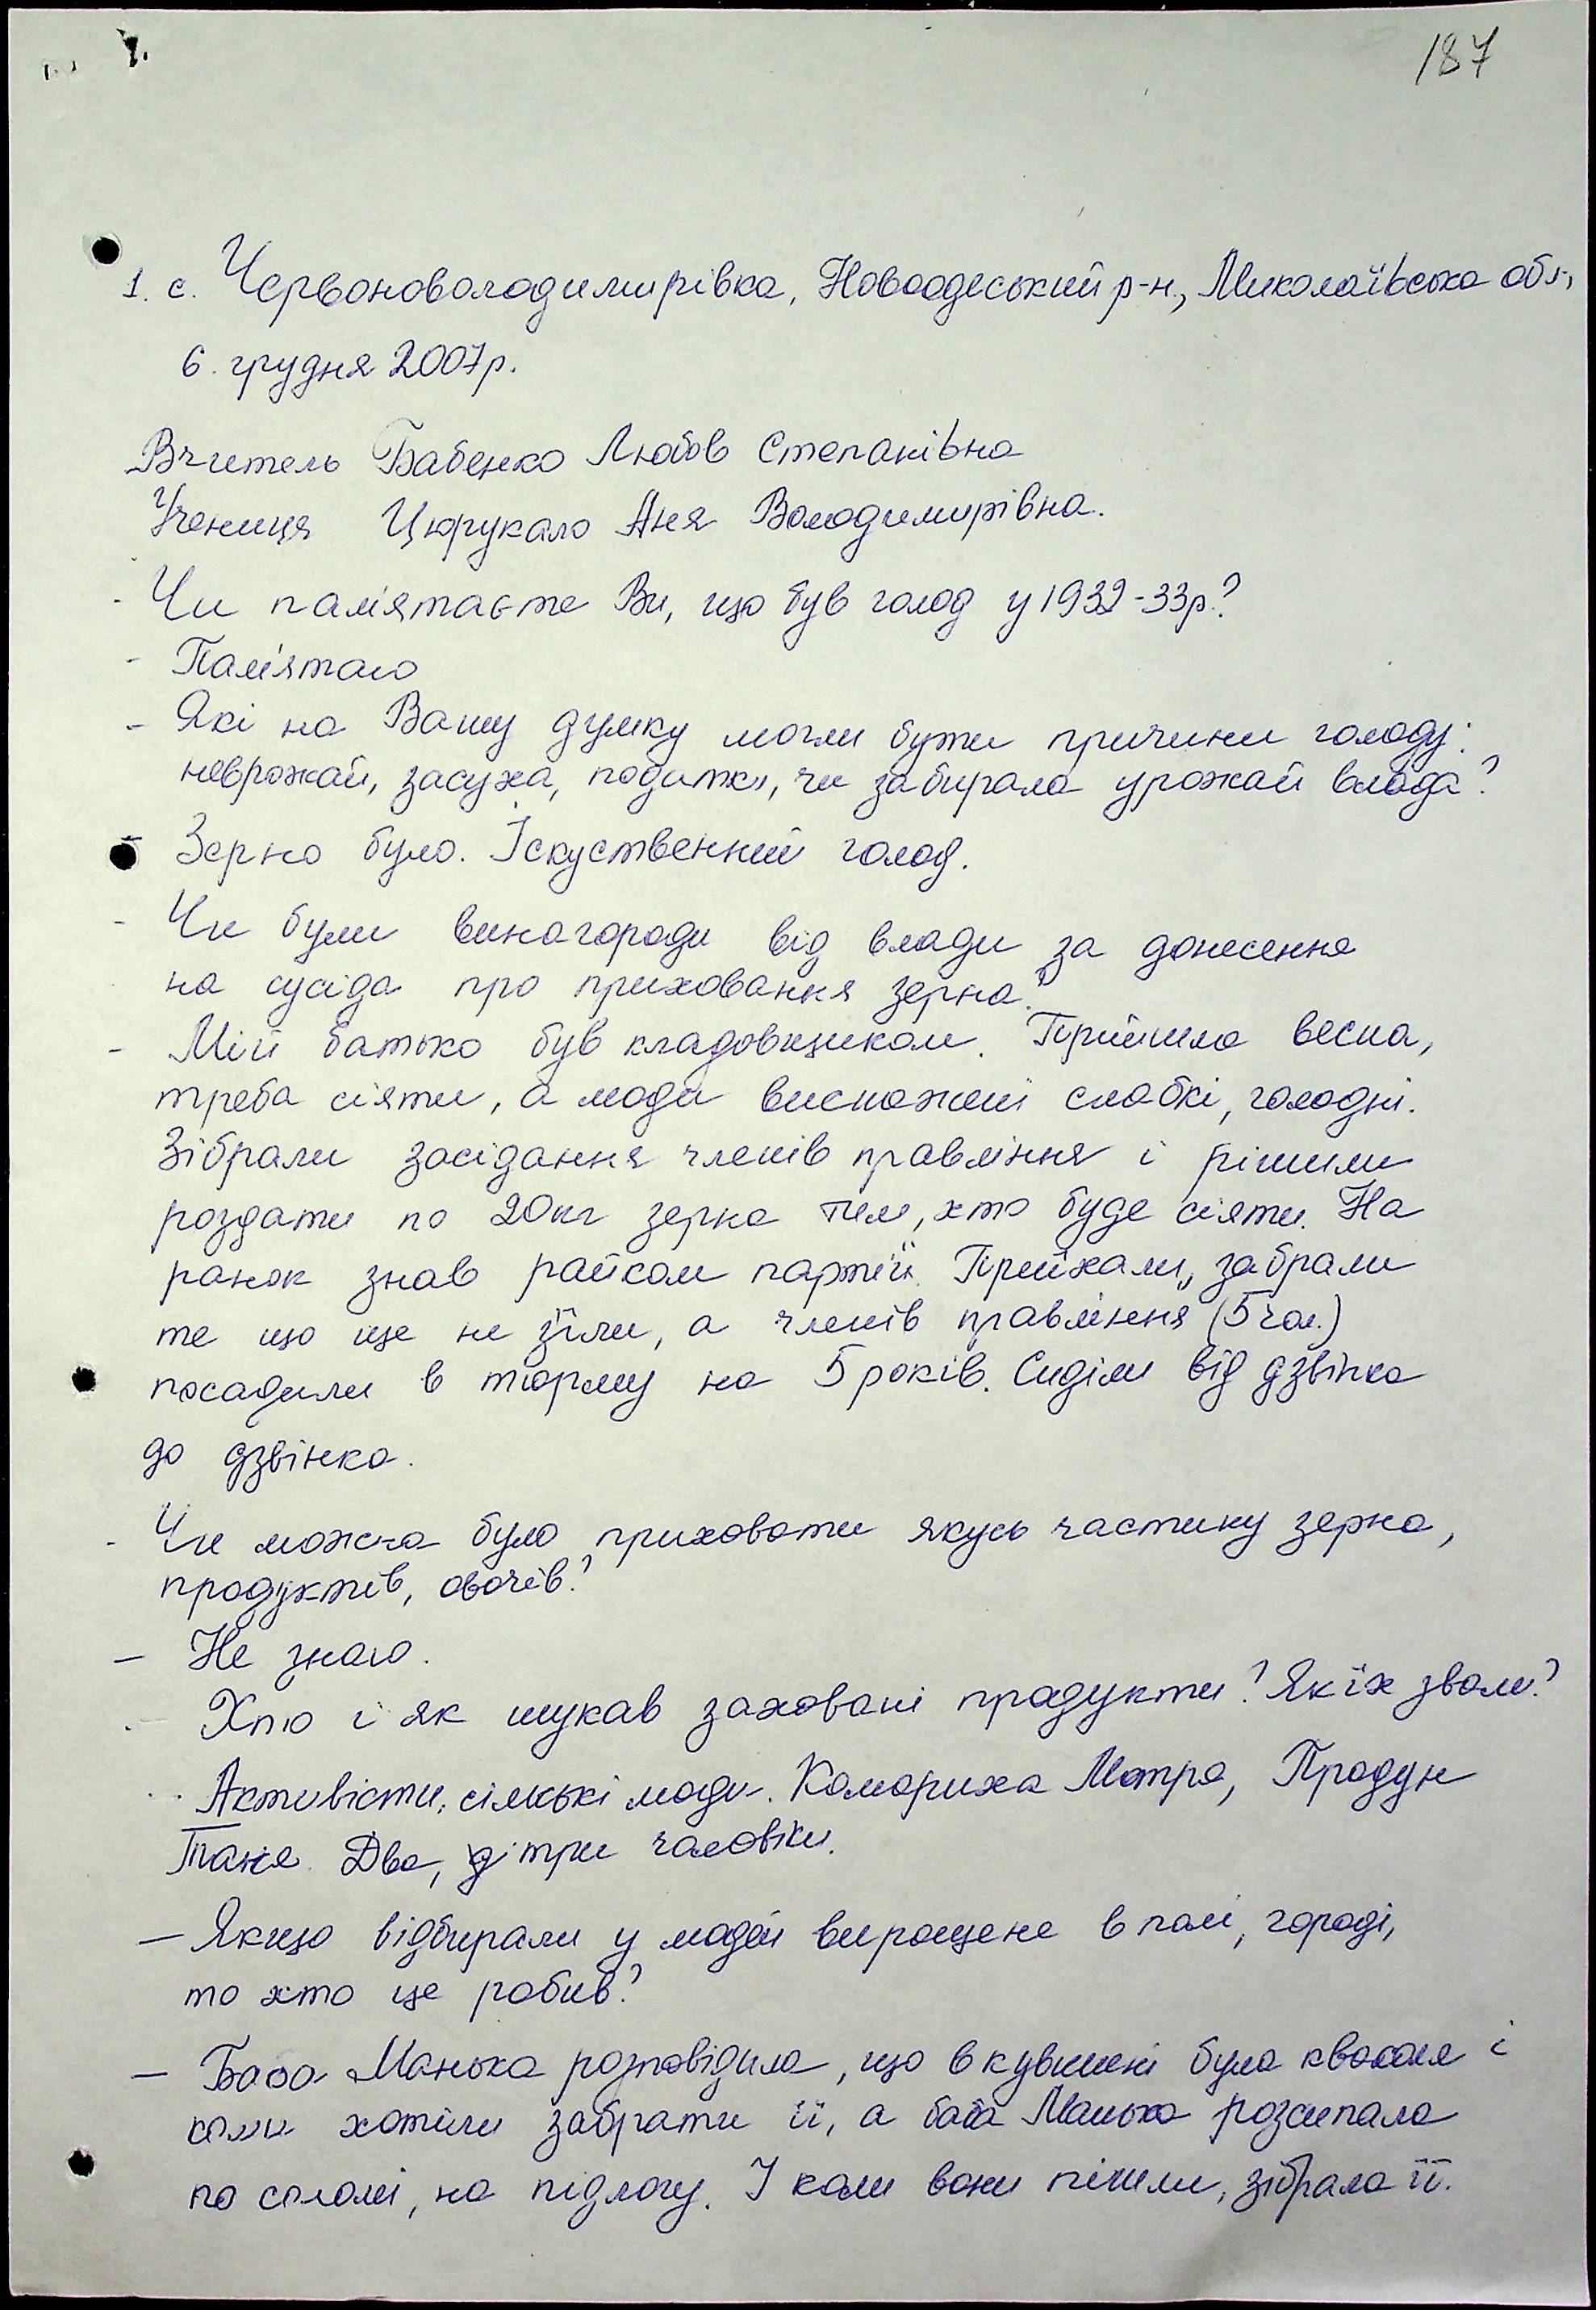 187
1. с. Червоноволодимирівка, Новоодеський р-н, Миколаївська обл.,
6. грудня 2007р.
Вчитель Бабенко Любов Степанівна
Учениця Цюрукало Аня Володимирівна.
- Чи пам'ятаєте Ви, що був голод у 1932-33р.?
- Пам'ятаю
- Які на Вашу думку могли бути причини голоду:
неврожай, засуха, податки, чи забирала урожай влада?
- Зерно було. Іскуственний голод.
- Чи були винагороди від влади за донесення
на сусіда про приховання зерна?
- Мій батько був кладовщиком. Прийшла весна,
треба сіяти, а люди виснажені слабкі, голодні.
Зібрали засідання членів правління і рішили
роздати по 20кг зерна тим, хто буде сіяти. На
ранок знав райком партії. Приїхали, забрали
те що ще не з'їли, а членів правління (5 чол.)
посадили в тюрму на 5 років. Сиділи від дзвінка
до дзвінка.
- Чи можна було приховати якусь частину зерна,
продуктів, овочів?
- Не знаю.
- Хто і як шукав заховані продукти? Як їх звали?
- Активісти, сільські люди. Комариха Мотря, Продун
Таня. Два, і три чоловіки.
- Якщо відбирали у людей вирощене в полі, городі,
то хто це робив?
- Баба Манька розповідила, що в кувшині була квасоля і
коли хотіли забрати її, а баба Манька розсипала
по соломі, на підлогу. І коли вони пішли, зібрала її.